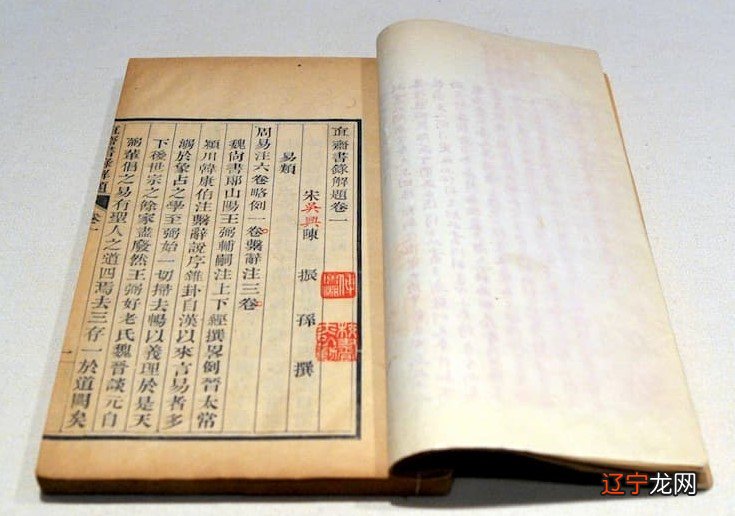 直齋書錄解題卷一
宋吳興陳振孫撰
易類
周易注六卷略例一卷繫辭注三卷
魏尚書郎山陽王弼輔嗣注上下經撰畧例晉太常
潁川韓康伯注繫辭說序雜卦自漢以來言易者多
溺於象占之學至弼始一切掃去暢以義理於是天
下後世宗之餘家盡廢然王弼好老氏魏晉談元自
弼輩倡之易有聖人之道四焉去三存一於道闕矣
直齋書錄解題 卷一 一
辽宁龙网